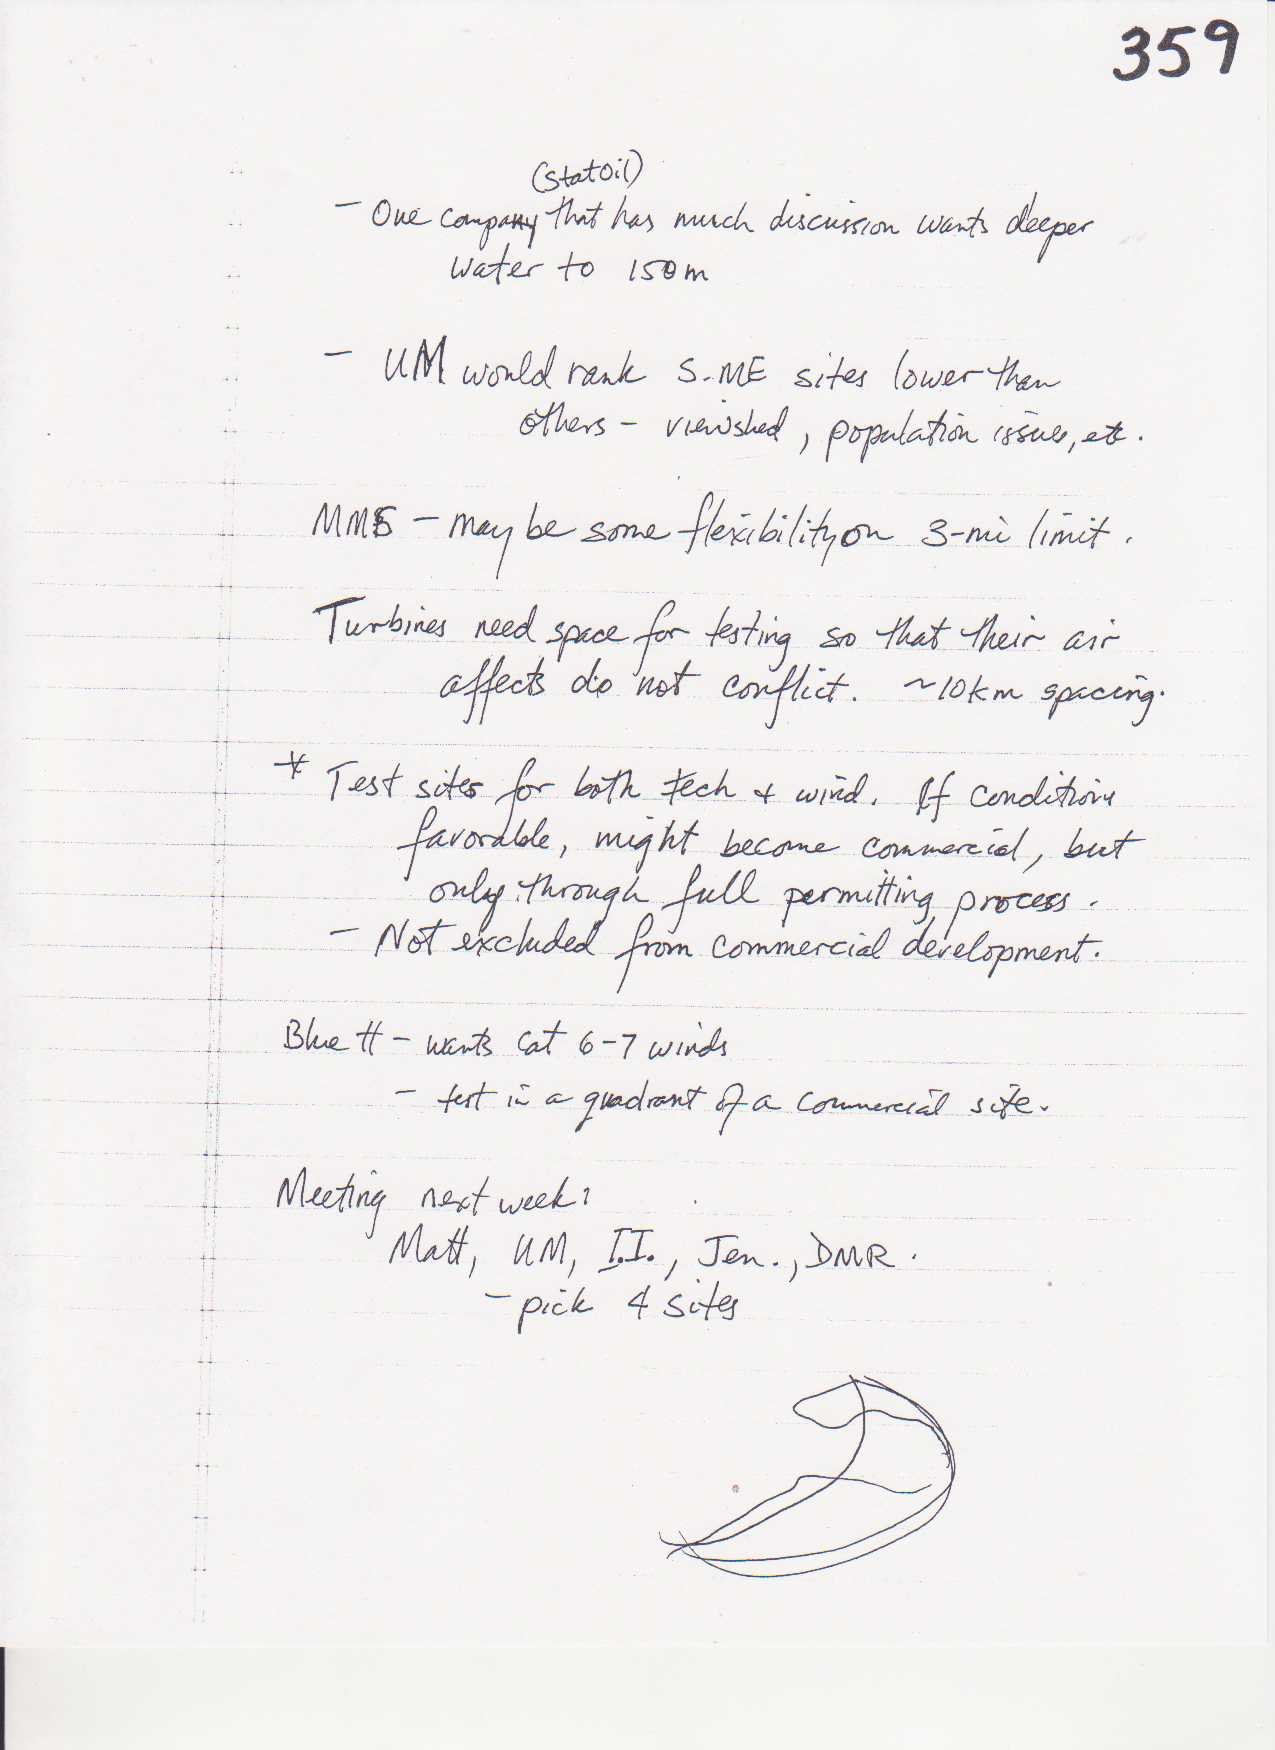 359
(StatOil)
- One company that has much discussion wants deeper
water to 150m
- UM would rank S. ME sites lower than
others - viewshed, population issues, etc.
MMS - may be some flexibility on 3-mi limit.
Turbines need space for testing so that their air
affects do not conflict. ~10km spacing.
* Test sites for both tech + wind. If conditions
favorable, might become commercial, but
only through full permitting process.
- Not excluded from commercial development.
Blue H - wants Cat 6-7 winds
- test in a quadrant of a commercial site.
Meeting next week:
Matt, UM, I.I., Jen., DMR.
- pick 4 sites